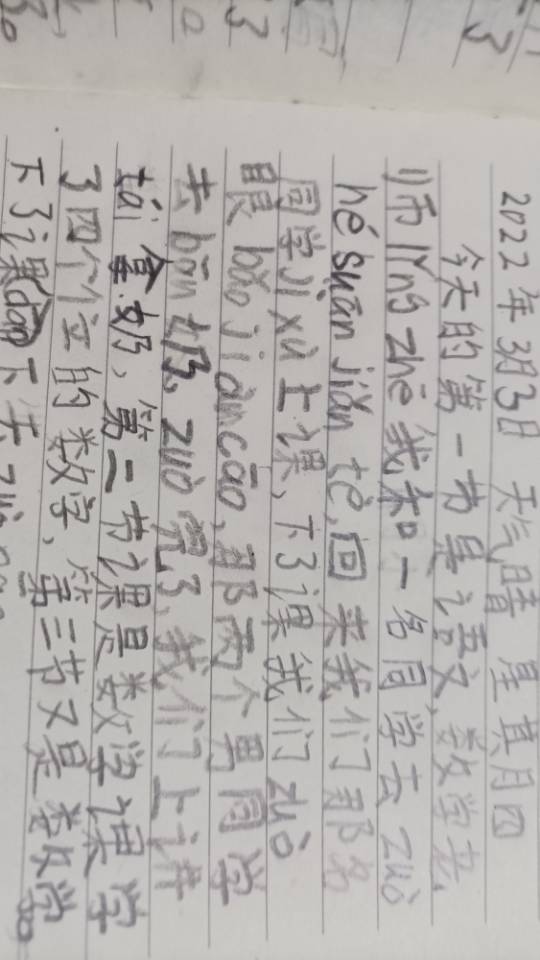 2022年3月3日 天气晴 星其月四
今天的第一节是语文,数学老
师lǐng zhē我和一名同学去zuò
hé suān jiǎn cè,回来我们那名
同学jì xù上课,下了课我们zuò
眼bǎo jiàn cāo,那两个男同学
去bān奶,zuò完了,我们上讲
tái拿奶、第二节课是数学课学
了四个位的数学,第三节又是数学
下了课 下去